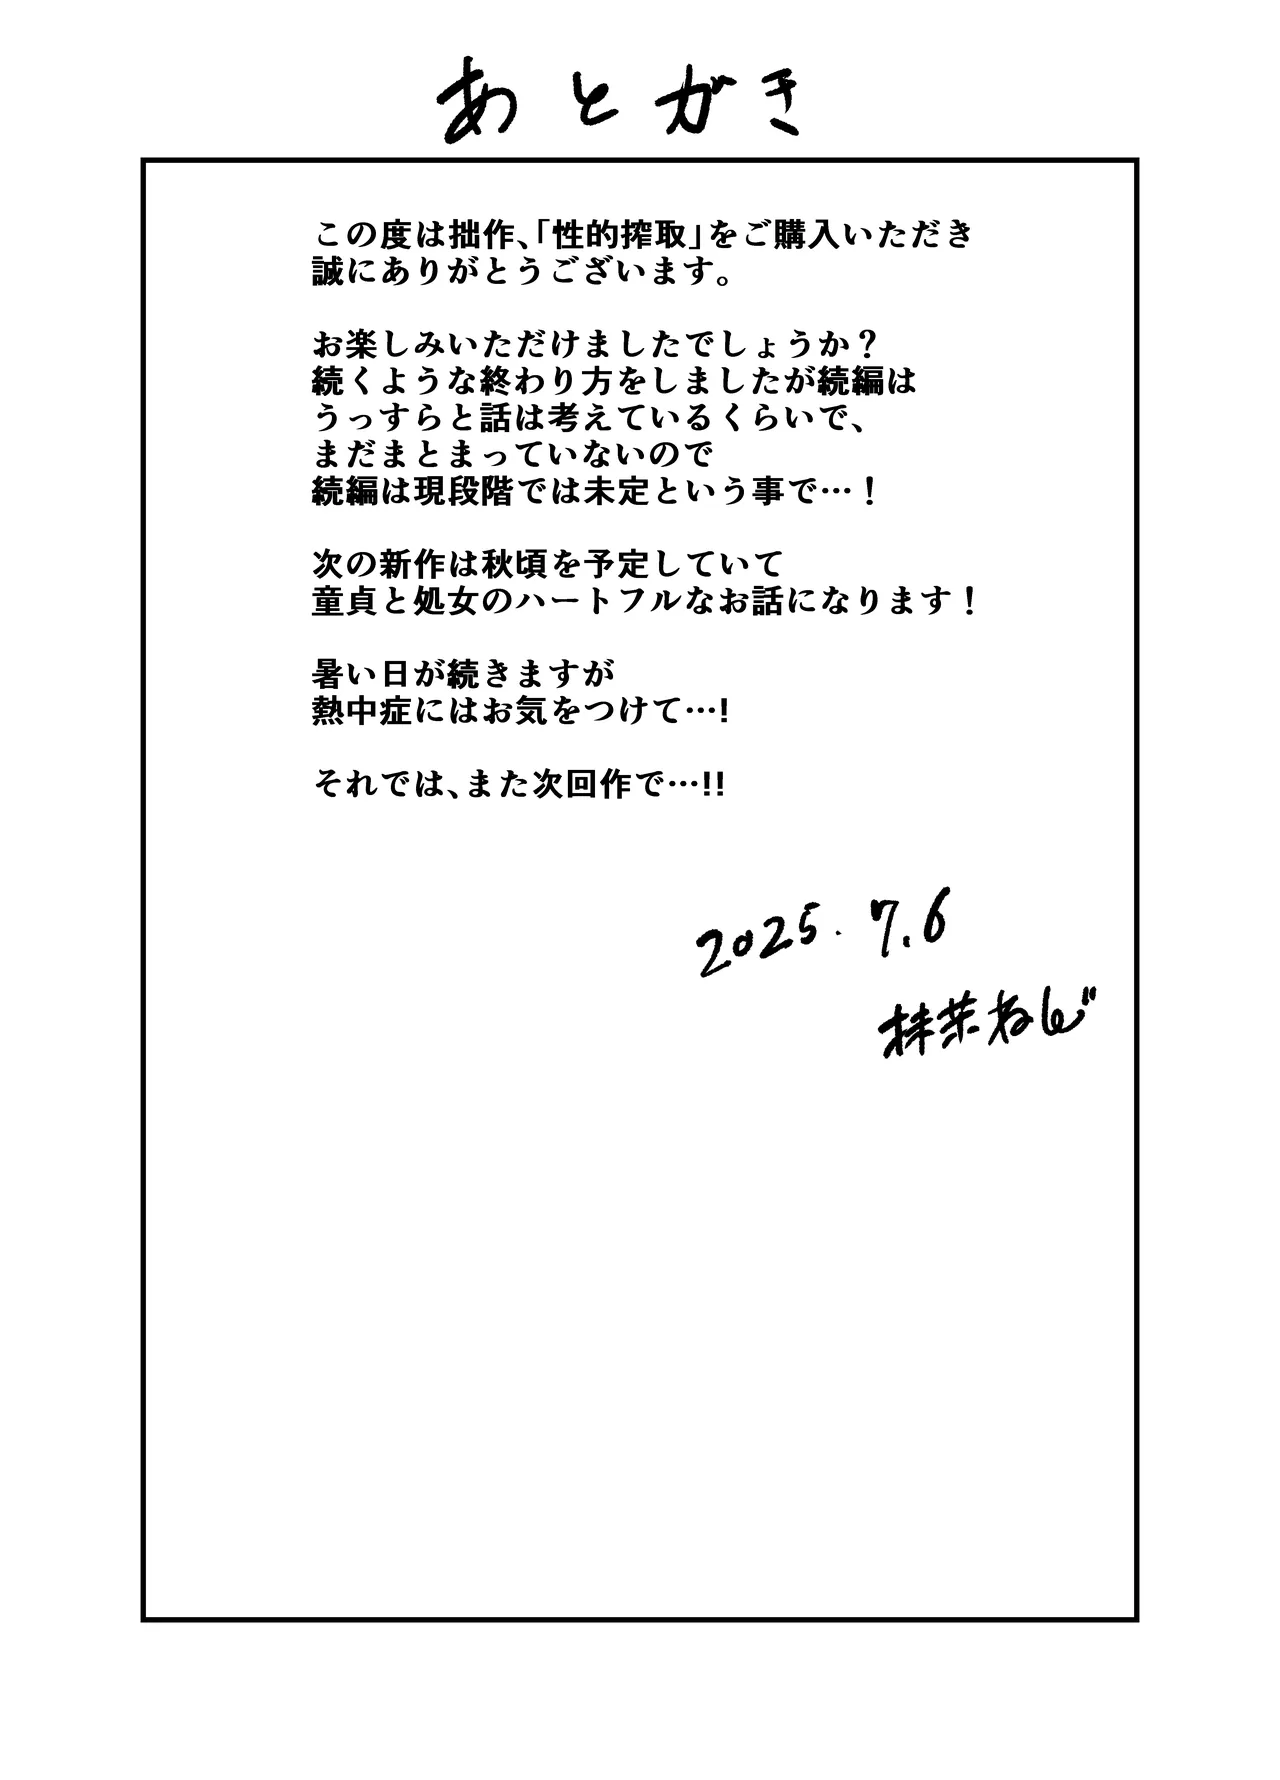 あとがき
この度は拙作、「性的搾取」をご購入いただき
誠にありがとうございます。
お楽しみいただけましたでしょうか？
続くような終わり方をしましたが続編は
うっすらと話は考えているくらいで、
まだまとまっていないので
続編は現段階では未定という事で…！
次の新作は秋頃を予定していて
童貞と処女のハートフルなお話になります！
暑い日が続きますが
熱中症にはお気をつけて…!
それでは、また次回作で…!!
2025.7.6
抹茶ねじ